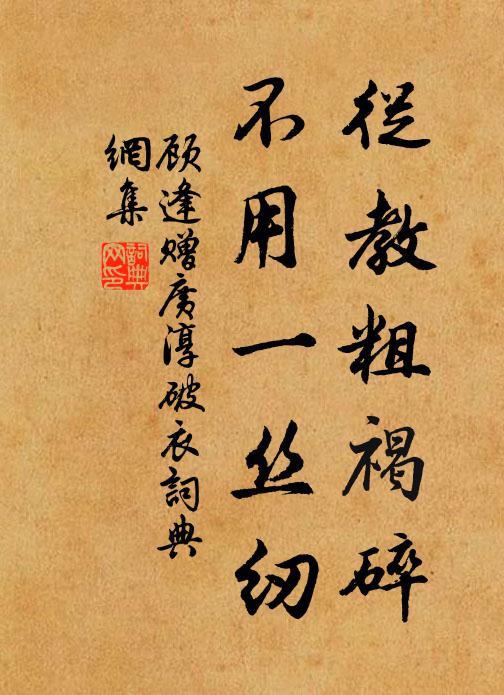 從教粗褐碎
不用一丝纫
顾逢赠广淳破衣詞典
網集
詞典
网印